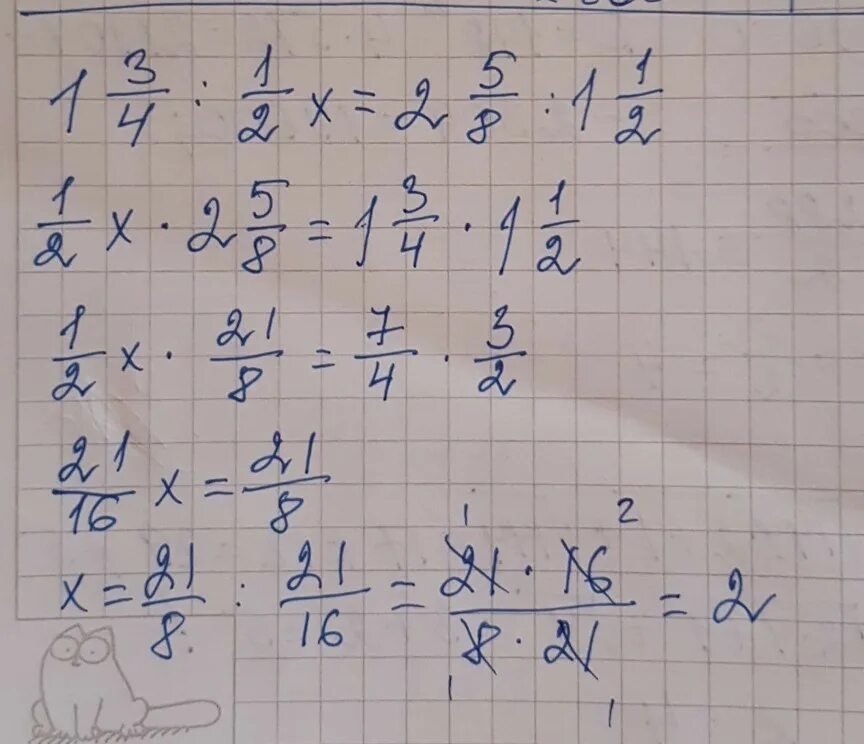 1 3/4 : 1/2 x = 2 5/8 : 1 1/2
1/2 x · 2 5/8 = 1 3/4 · 1 1/2
1/2 x · 21/8 = 7/4 · 3/2
21/16 x = 21/8
x = 21/8 : 21/16 = 21 · 16 / 8 · 21 = 2
1 2
1 1